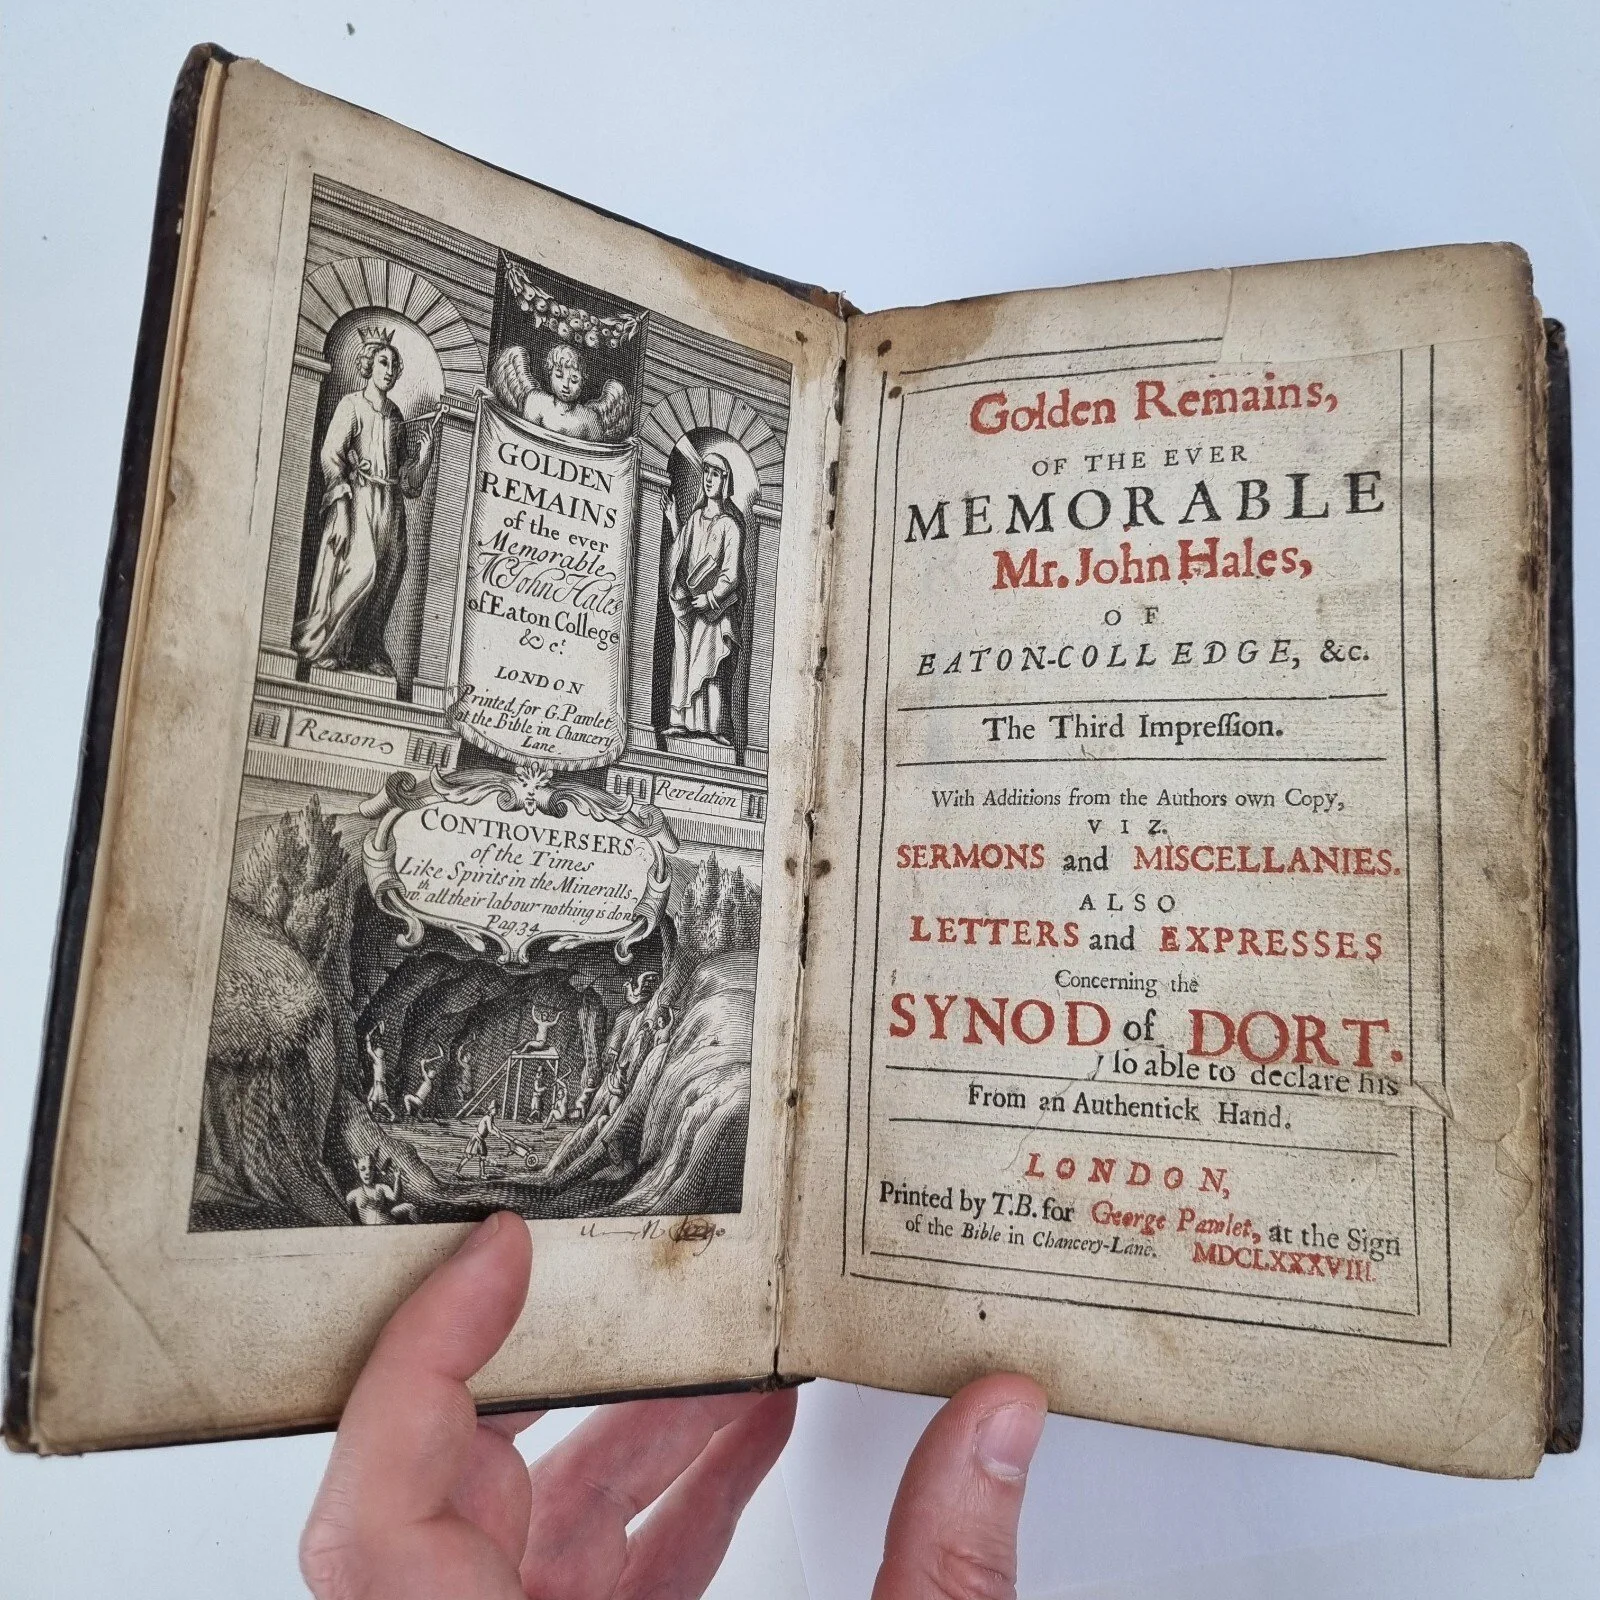 GOLDEN
REMAINS
of the ever
Memorable
Mr John Hales
of Eaton College
&c.
LONDON
Printed for G. Pawlet
at the Bible in Chancery
Lane.
Reason
Revelation
CONTROVERSERS
of the Times
Like Spirits in the Mineralls
wth. all their labour nothing is don
Pag. 34
Golden Remains,
OF THE EVER
MEMORABLE
Mr. John Hales,
OF
EATON-COLLEDGE, &c.
The Third Impreſſion.
With Additions from the Authors own Copy,
VIZ.
SERMONS and MISCELLANIES.
ALSO
LETTERS and EXPRESSES
Concerning the
SYNOD of DORT.
ſo able to declare his
From an Authentick Hand.
LONDON,
Printed by T.B. for George Pawlet, at the Sign
of the Bible in Chancery-Lane. MDCLXXXVIII.